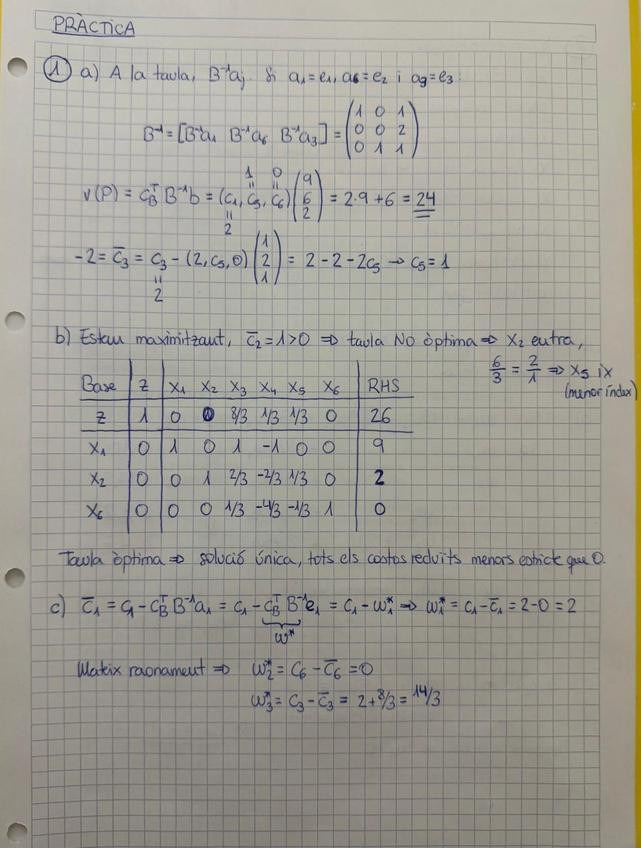 PRÀCTICA
① a) A la taula, B⁻¹aj. Si a₁=e₁, a₆=e₂ i a₃=e₃:
B⁻¹=[B⁻¹a₁ B⁻¹a₆ B⁻¹a₃] = (1 0 1
0 0 2
0 1 1)
v(P) = c_Bᵀ B⁻¹b = (c₁, c₅, c₆) (9 6 2) = 2·9+6 = 24
1 0
2
-2 = c̄₃ = c₃ - (2, c₅, 0) (1 2 1) = 2 - 2 - 2c₅ → c₅ = 1
2
b) Estem maximitzant, c̄₂ = 1 > 0 ⇒ taula NO òptima ⇒ X₂ entra,
6/3 = 2/1 ⇒ X₅ ix
(menor índex)
Base Z X₁ X₂ X₃ X₄ X₅ X₆ RHS
Z 1 0 0 8/3 1/3 1/3 0 26
X₁ 0 1 0 1 -1 0 0 9
X₂ 0 0 1 2/3 -2/3 1/3 0 2
X₆ 0 0 0 1/3 -4/3 -1/3 1 0
Taula òptima ⇒ solució única, tots els costos reduïts menors estricte que 0.
c) c̄₁ = c₁ - c_Bᵀ B⁻¹a₁ = c₁ - c_Bᵀ B⁻¹e₁ = c₁ - w₁* ⇒ w₁* = c₁ - c̄₁ = 2-0 = 2
w*
Mateix raonament ⇒ w₂* = c₆ - c̄₆ = 0
w₃* = c₃ - c̄₃ = 2 + 8/3 = 14/3